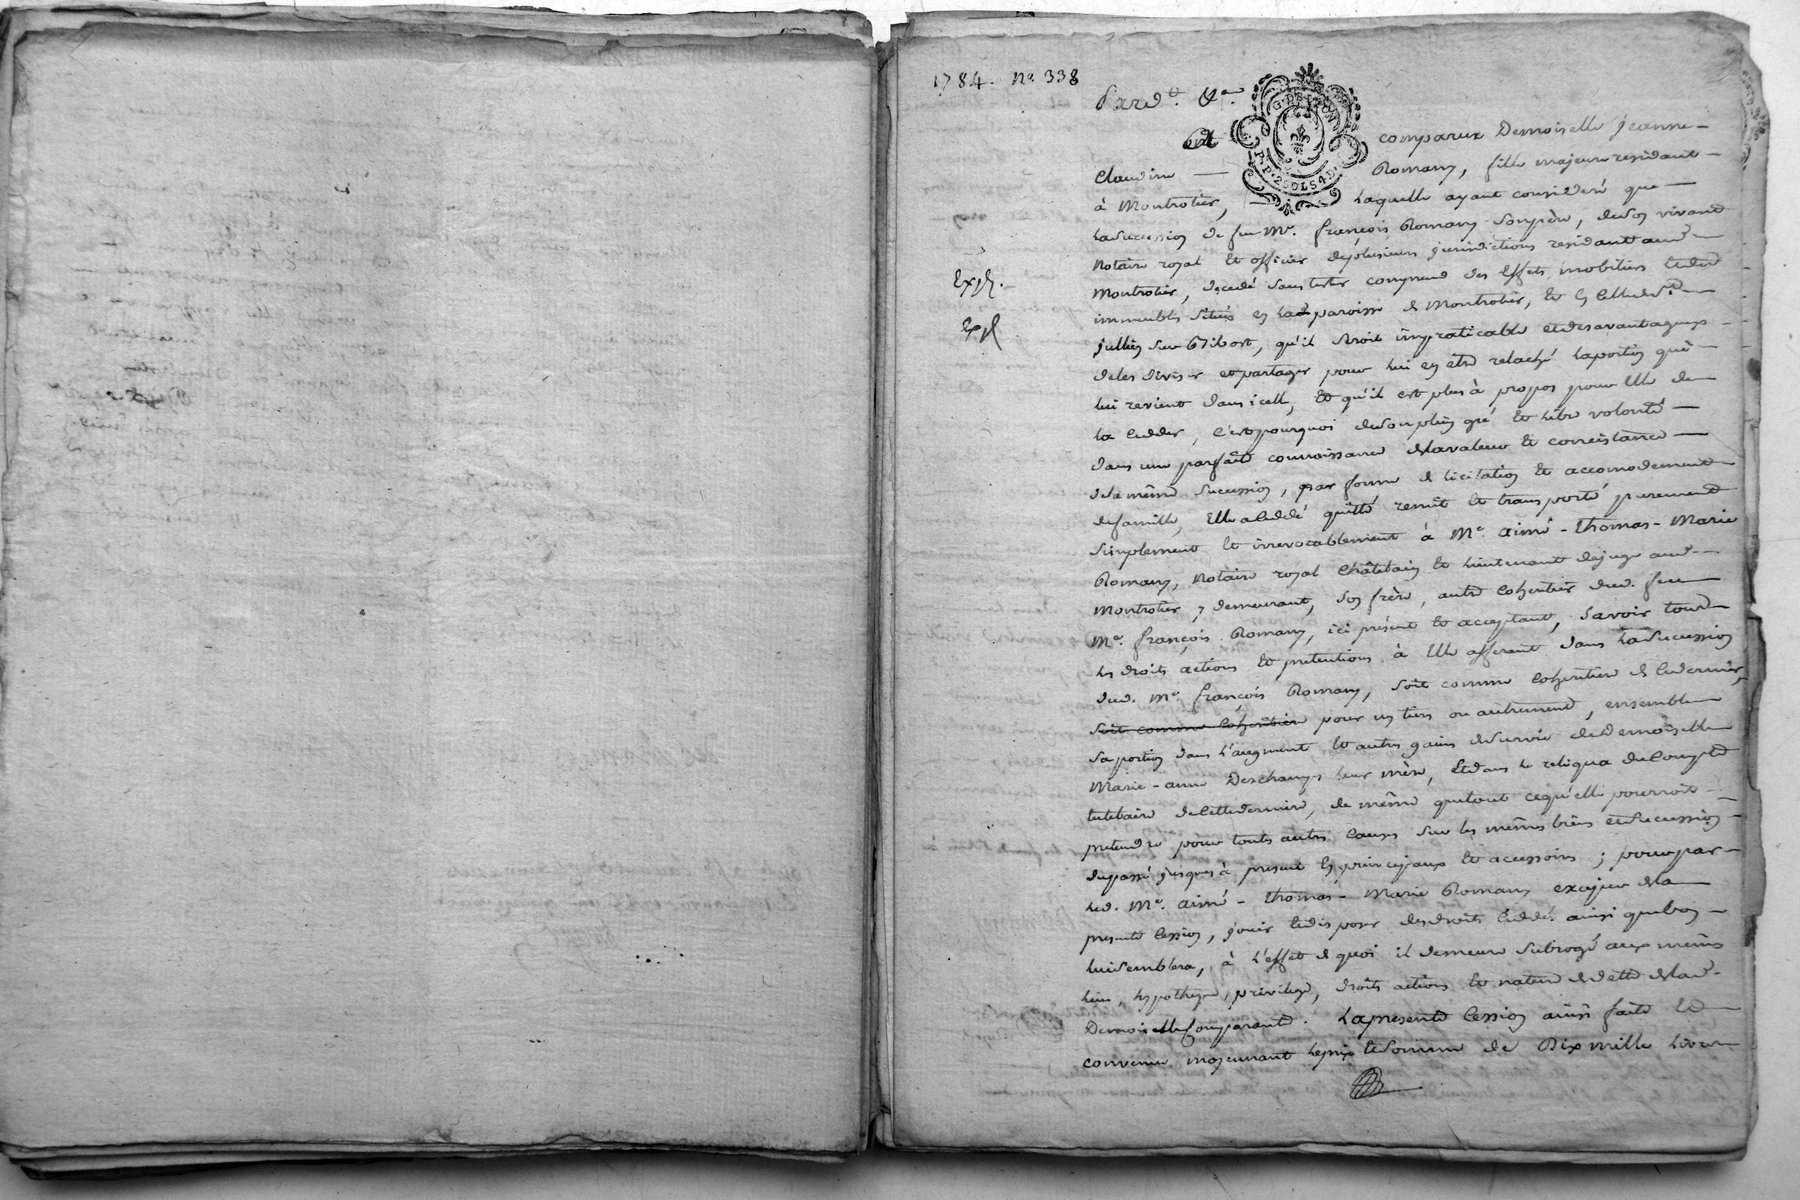 1784. No. 338
Pard.t &a.
G. DE LYON
P. P. 2 SOLS 4 D.
Est comparue Demoiselle Jeanne
Claudine Romany, fille majeure residant
à Montrotier, Laquelle ayant consideré que
la Succession de feu Me. françois Romany son père, de son vivant
Notaire royal et officier de plusieurs jurisdictions residant aud.
Expé.
Montrotier, decedé sans tester comprend des effets mobiliers et des
immeubles situés en lad. paroisse de Montrotier, et en celle de St.
Expé
jullien sur Bibost, qu'il seroit impraticable et desavantageux
de les diviser et partager pour lui en etre relaché la portion qui
lui revient dans icelle, et qu'il est plus à propos pour elle de
la ceder, C'est pourquoi de son plein gré et libre volonté
dans une parfaite connoissance de la valeur et consistance
de la même succession, par forme de licitation et accomodement
de famille, Elle a cedé quitté remis et transporté purement
simplement et irrevocablement à Me. aimé - thomas - Marie
Romany, Notaire royal Châtelain et Lieutenant de juge aud.
Montrotier, y demeurant, son frère, autre cohéritier dud. feu
Me. françois Romany, ici présent et acceptant, savoir tous
les droits actions et pretentions à elle afferant dans la Succession
dud. Me. françois Romany, soit comme cohéritiere de ce dernier,
soit comme cohéritiere pour un tiers ou autrement, ensemble
sa portion dans l'augment et autres gains de survie de Demoiselle
Marie - anne Deschamps leur mère, et dans le reliqua du compte
tutelaire de cette derniere, de même que tout ce qu'elle pourroit
pretendre pour toutes autres causes sur les mêmes biens et succession
du passé jusques à present en principaux et accessoires ; pour par
led. Me. aimé - thomas - Marie Romany exciper de la
presente cession, jouir et disposer des droits cedés ainsi que bon
lui semblera, à l'effet de quoi il demeure subrogé aux mêmes
lieu, hypotheque, privilege, droits actions et nature de dette de lad.
Demoiselle Comparante. La presente Cession ainsi faite et
convenue moyennant le prix et somme de Dix mille livres